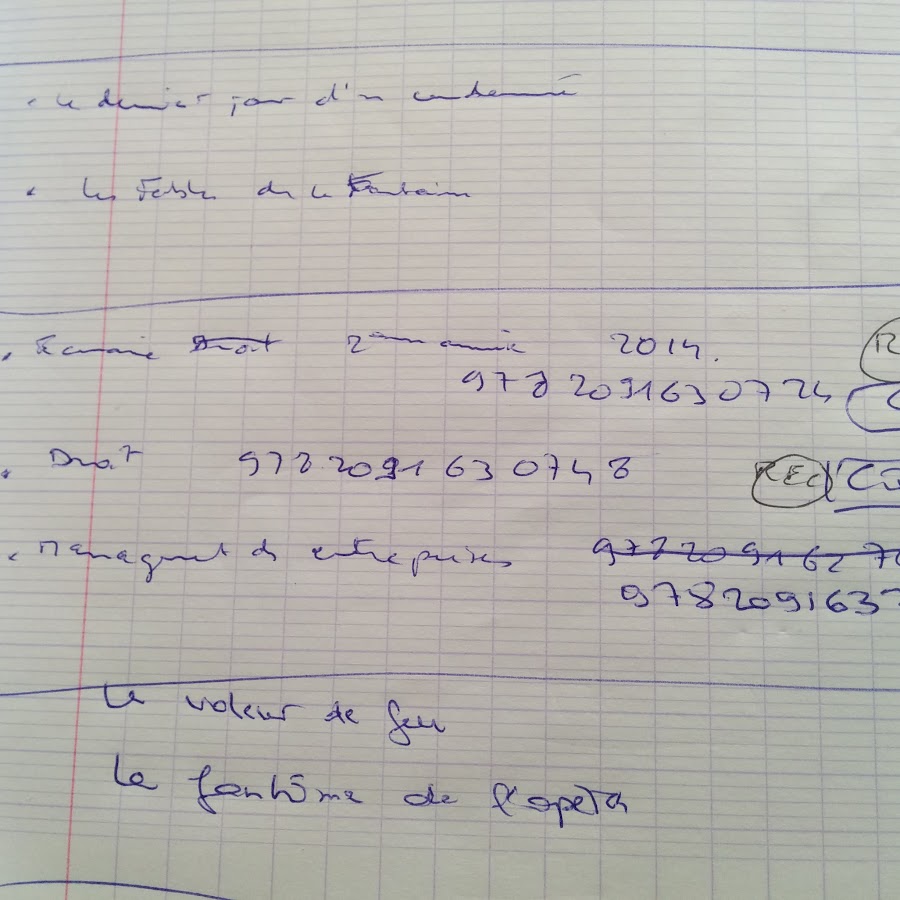 • Le dernier jour d'un condamné
• Les Fables de La Fontaine
• Economie Droit 2ème année 2014.
9782091630724
• Droit 9782091630748 REC
• Management des entreprises 978209162
9782091637
Le voleur de feu
Le fantôme de l'opéra